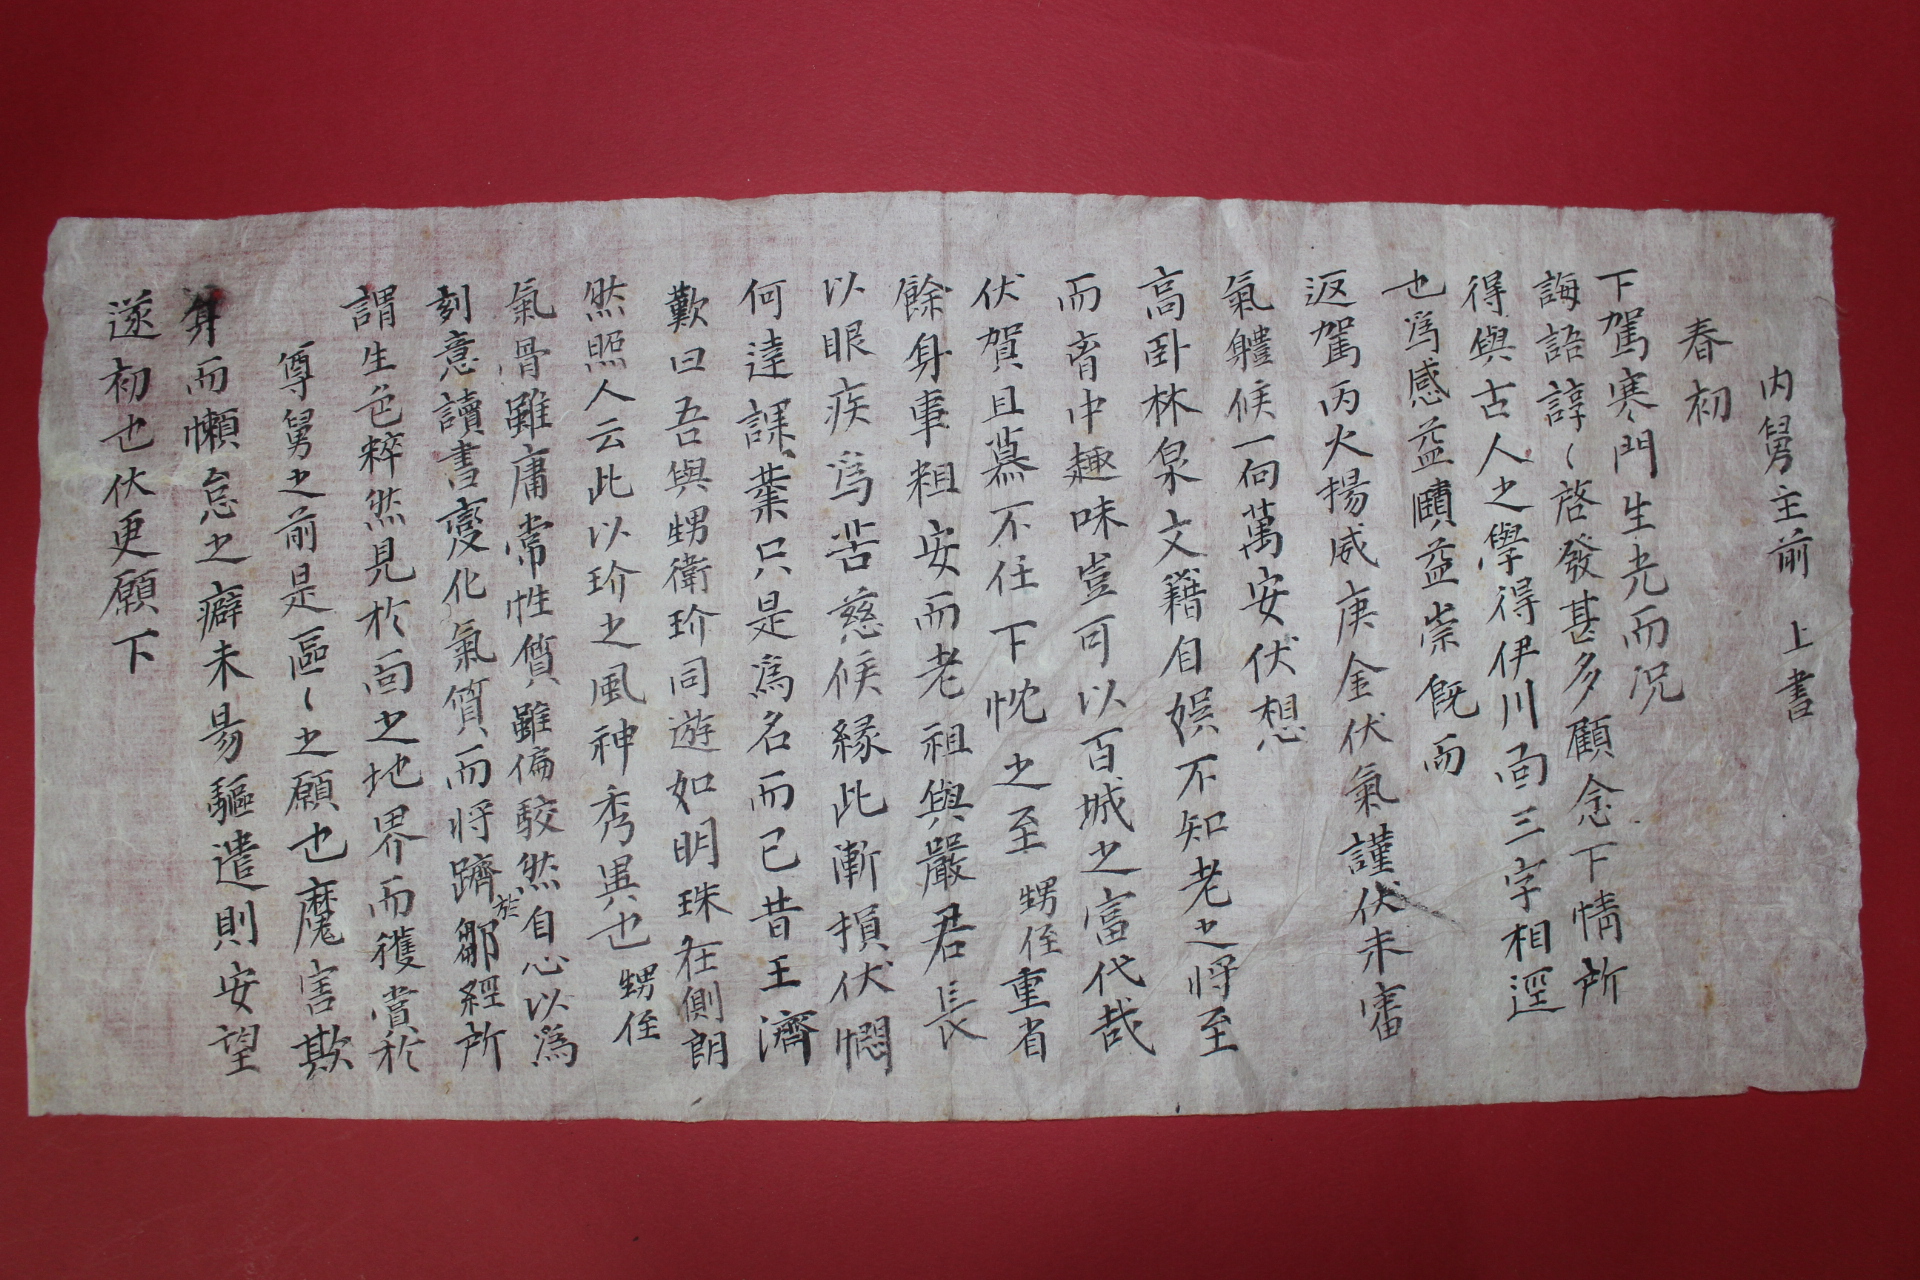 内舅主前 上書
春初
下駕寒門生光而况
誨語諄〻啓發甚多顧念下情所
得與古人之學得伊川面三字相逕
也爲感益賾益崇旣而
返駕丙火揚威庚金伏氣謹伏未審
氣軆候一向萬安伏想
高卧林泉文籍自娱不知老之將至
而胷中趣味豈可以百城之富代哉
伏賀且慕不任下忱之至 甥侄重省
餘身事粗安而老祖與嚴君長
以眼疾爲苦慈候縁此漸損伏悶
何達課業只是爲名而已昔王濟
歎曰吾與甥衛玠同遊如明珠在側朗
然照人云此以玠之風神秀異也甥侄
氣骨雖庸常性質雖偏駁然自心以爲
刻意讀書變化氣質而將躋於鄒經所
謂生色粹然見於面之地界而獲賞於
尊舅之前是區〻之願也魔害欺
身而懶怠之癖未易驅遣則安望
遂初也伏更願下